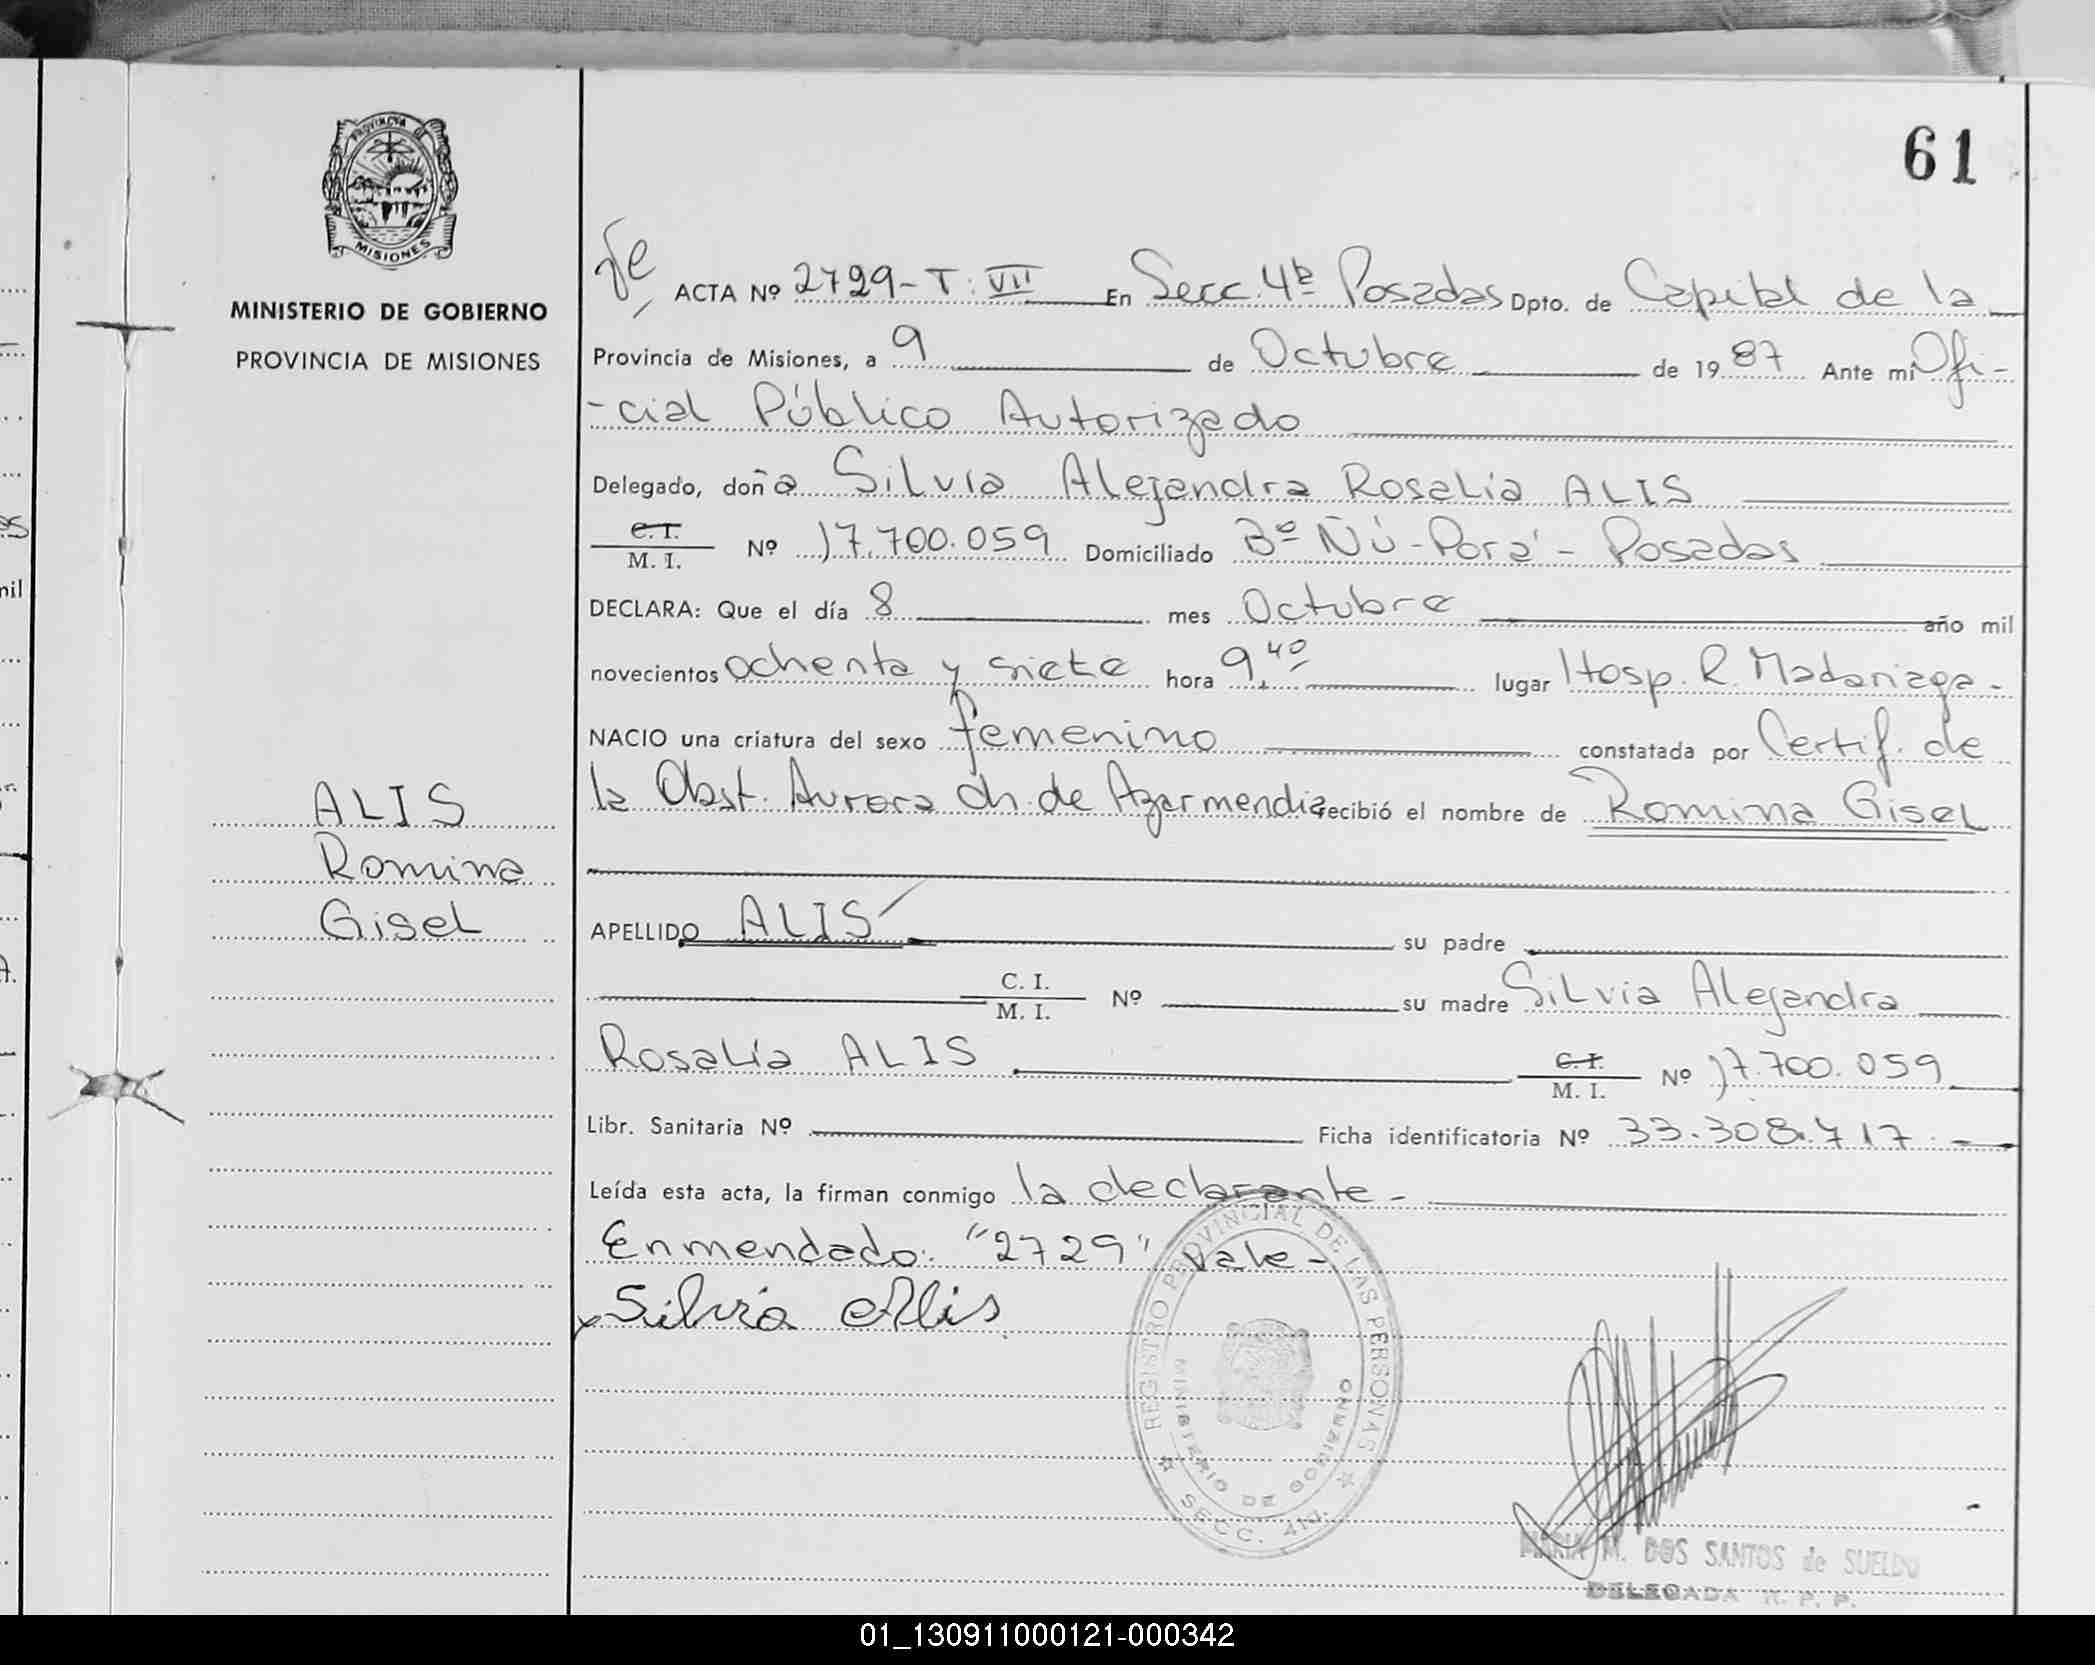 61
PROVINCIA DE
MISIONES
MINISTERIO DE GOBIERNO
PROVINCIA DE MISIONES
ALIS
Romina
Gisel
ACTA Nº 2729-T: VII En Secc. 4ª Posadas Dpto. de Capital de la
Provincia de Misiones, a 9 de Octubre de 1987 Ante mi Ofi-
-cial Público Autorizado
Delegado, doña Silvia Alejandra Rosalía ALIS
C. I.
M. I. Nº 17.700.059 Domiciliado Bº Ñú-Porá - Posadas
DECLARA: Que el día 8 mes Octubre año mil
novecientos ochenta y siete hora 9,40 lugar Hosp. R. Madariaga.
NACIO una criatura del sexo femenino constatada por Certif. de
la Obst. Aurora Ch. de Azarmendia recibió el nombre de Romina Gisel
APELLIDO ALIS su padre
C. I.
M. I. Nº su madre Silvia Alejandra
Rosalía ALIS C. I.
M. I. Nº 17.700.059
Libr. Sanitaria Nº Ficha identificatoria Nº 33.308.717.-
Leída esta acta, la firman conmigo la declarante-
Enmendado: "2729" Vale-
x Silvia Alis
REGISTRO PROVINCIAL DE LAS PERSONAS
MINISTERIO DE GOBIERNO
SECC. 4ta.
MARIA M. DOS SANTOS de SUELDO
DELEGADA R. P. P.
01_130911000121-000342